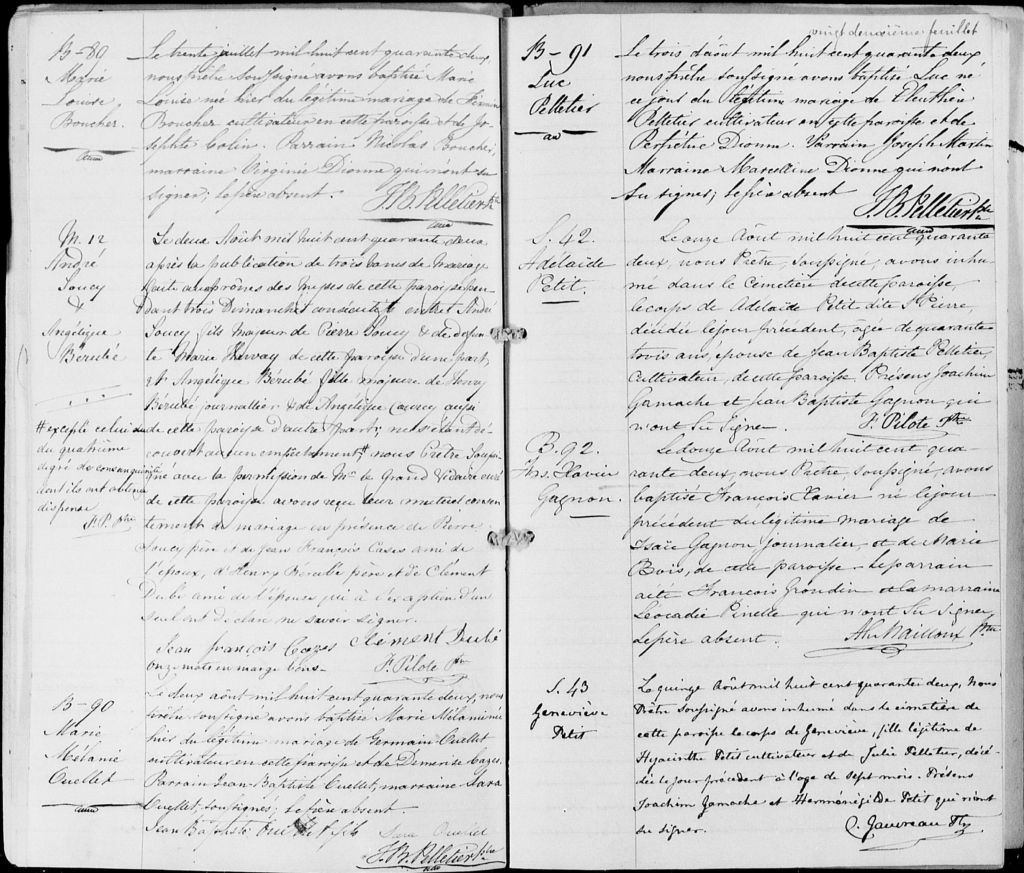 B-89
Marie
Louise
Boucher.
Le trente juillet mil huit cent quarante deux
nous prêtre soussigné avons baptisé Marie
Louise née hier du légitime mariage de Firmin
Boucher cultivateur en cette paroisse et de Jo-
sephte Colin. Parrain Nicolas Boucher,
marraine Virginie Dionne qui n'ont su
signer; le père absent.
J.B. Pelletier Ptre
M. 12
André
Soucy
&
Angélique
Bérubé
Le deux Août mil huit cent quarante deux
après la publication de trois bans de mariage
faite aux prônes des messes de cette paroisse pen-
dant trois Dimanches consécutifs entre André
Soucy fils majeur de Pierre Soucy & de défun-
te Marie de cette paroisse d'une part,
et Angélique Bérubé fille majeure de Henry
Bérubé journallier & de Angélique aussi
de cette paroisse d'autre part; ne s'étant dé-
couvert aucun empêchement # nous Prêtre soussi-
gné avec la permission de Mr le Grand Vicaire curé
de cette paroisse avons reçu leur mutuel consen-
tement de mariage en présence de Pierre
Soucy père et de Jean François Cazes ami de
l'époux, d'Henry Bérubé père et de Clément
Dubé ami de l'épouse qui à l'exception d'un
seul ont déclaré ne savoir signer.
# excepté celui du
du quatrième
degré de consanguinité
dont ils ont obtenu
dispense
F.P. Ptre
Jean François Cazes Clément Dubé
onze mots en marge bons. F. Pilote Ptr
B-90
Marie
Mélanie
Ouellet
Le deux août mil huit cent quarante deux, nous
prêtre soussigné avons baptisé Marie Mélanie née
hier du légitime mariage de Germain Ouellet
cultivateur en cette paroisse et de Demerise
Parrain Jean-Baptiste Ouellet, marraine Sara
Ouellet, soussignés; le père absent
Jean Baptiste fils Sara Ouellet
J.B. Pelletier Ptre
vingt deuxième feuillet
B-91
Luc
Pelletier
Le trois d'août mil huit cent quarante deux
nous prêtre soussigné avons baptisé Luc né
ce jour du légitime mariage de Eleuthère
Pelletier cultivateur en cette paroisse et de
Perpétue Dionne. Parrain Joseph Martin
Marraine Marcelline Dionne qui n'ont
su signer; le père absent
J.B. Pelletier Ptre
S. 42.
Adélaïde
Petit.
Le onze Août mil huit cent quarante
deux, nous Prêtre, soussigné, avons inhu-
mé dans le Cimetière de cette paroisse,
le corps de Adélaïde Petit dite St Pierre,
décédée le jour précédent, âgée de quarante
trois ans, épouse de Jean Baptiste Pelletier,
Cultivateur, de cette paroisse, Présens Joachim
Gamache et Jean Baptiste Gagnon qui
n'ont su Signer. F. Pilote Ptre
B. 92.
Frs. Xavier
Gagnon.
Le douze Août mil huit cent qua-
rante deux, nous Prêtre, soussigné, avons
baptisé François Xavier né le jour
précédent du légitime mariage de
Isaïe Gagnon journalier, et de Marie
Bois, de cette paroisse. Le parrain
a été François Grondin et la marraine
Léocadie Pinelle qui n'ont su signer,
Le père absent. Alx Mailloux Ptre
S. 43
Geneviève
Petit
Le quinze Août mil huit cent quarante deux, Nous
Prêtre soussigné avons inhumé dans le cimetière de
cette paroisse le corps de Geneviève, fille légitime de
Hyacinthe Petit cultivateur et de Julie Pelletier, décé-
dée le jour précédent à l'âge de sept mois. Présens
Joachim Gamache et Herménégilde Petit qui n'ont
su signer.
C. Gauvreau Ptr